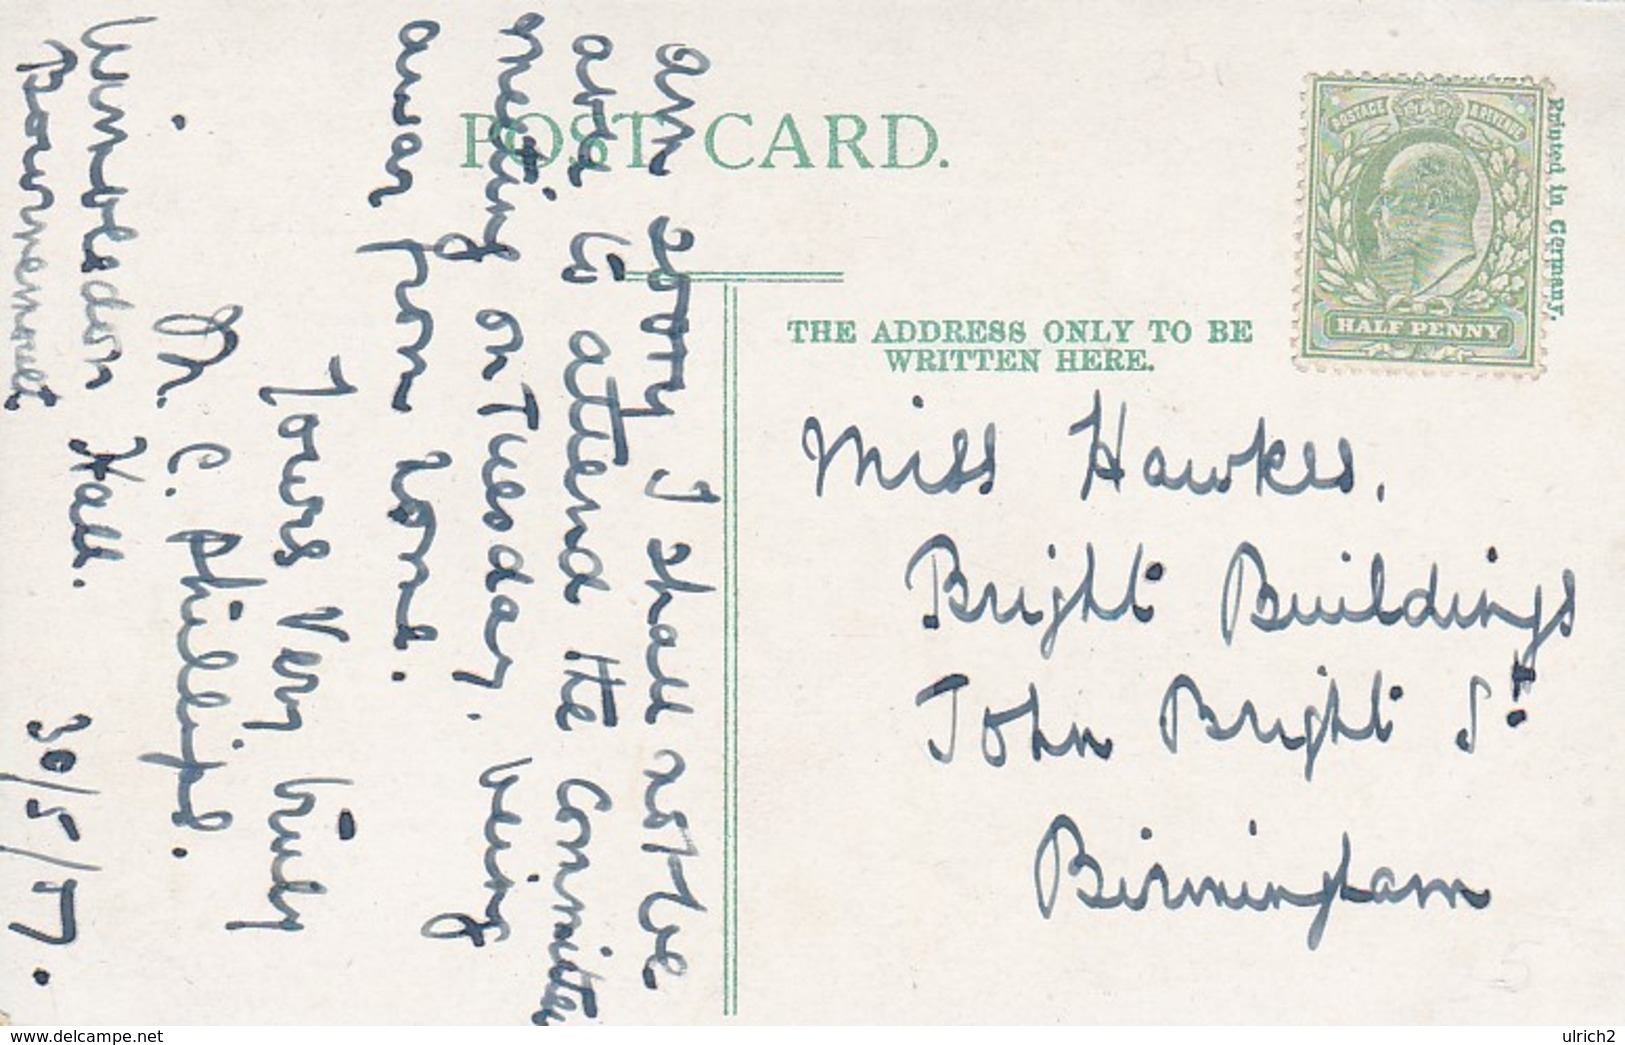 POST CARD.
POSTAGE & REVENUE
HALF PENNY
Printed in Germany.
THE ADDRESS ONLY TO BE
WRITTEN HERE.
Miss Hawkes.
Bright Buildings
John Bright St.
Birmingham
am sorry I shall not be
able to attend the Committee
meeting on Tuesday. being
away from home.
Yours Very truly
M. C. Phillips.
Wimbledon Hall.
Bournemouth 30/5/17.
www.delcampe.net
ulrich2